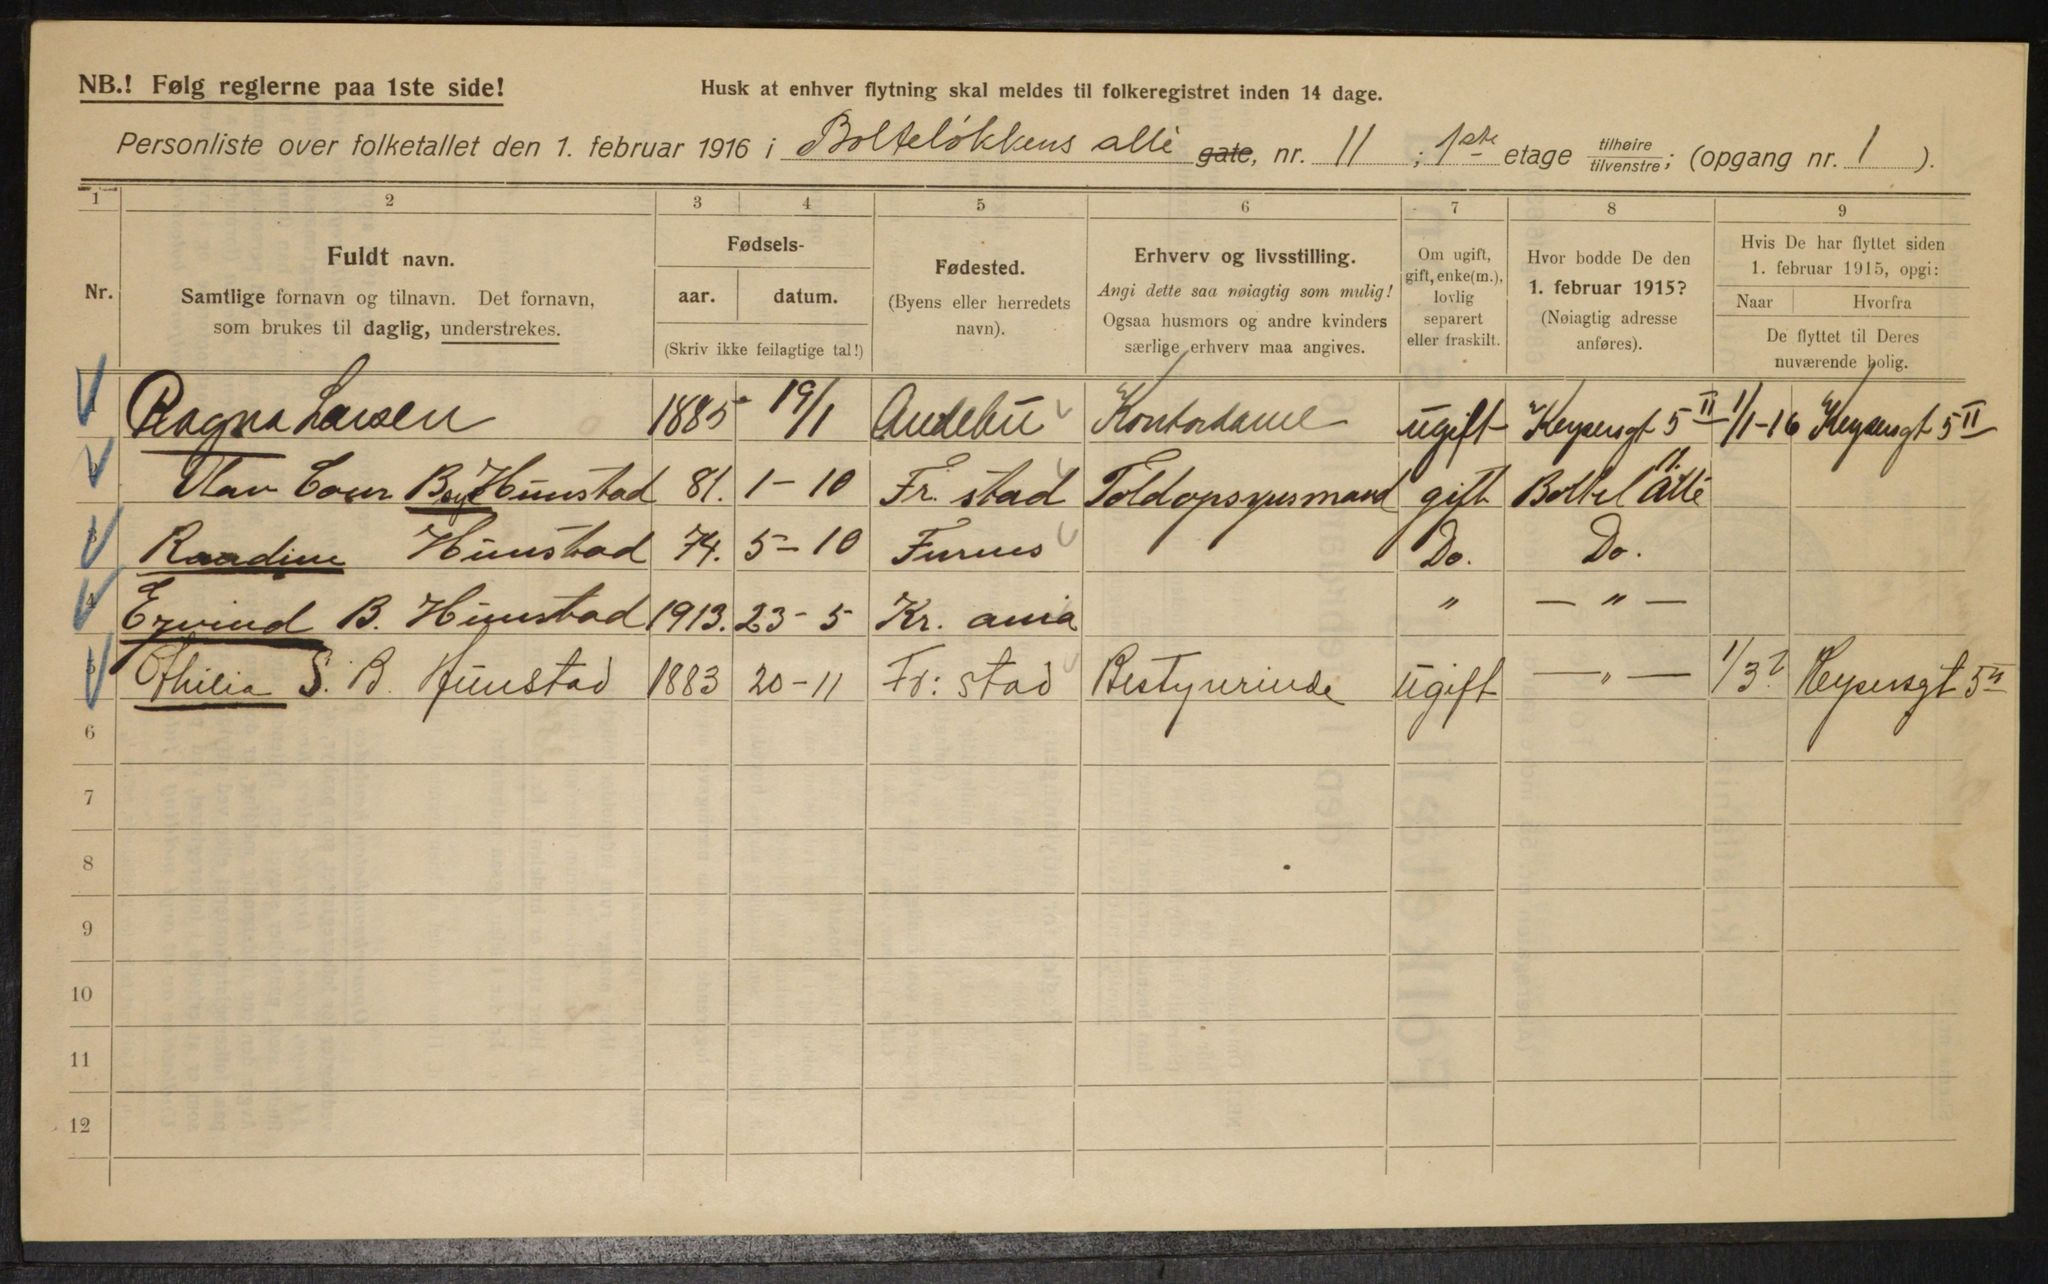 NB.! Følg reglerne paa 1ste side!
Husk at enhver flytning skal meldes til folkeregistret inden 14 dage.
Personliste over folketallet den 1. februar 1916 i Bolteløkkens allé gate, nr. 11 ; 1ste etage tilhøire/tilvenstre; (opgang nr. 1 ).
1 2 3 4 5 6 7 8 9
Nr.
Fuldt navn.
Samtlige fornavn og tilnavn. Det fornavn,
som brukes til daglig, understrekes.
Fødsels-
aar. datum.
(Skriv ikke feilagtige tal!)
Fødested.
(Byens eller herredets
navn).
Erhverv og livsstilling.
Angi dette saa nøiagtig som mulig!
Ogsaa husmors og andre kvinders
særlige erhverv maa angives.
Om ugift,
gift, enke(m.),
lovlig
separert
eller fraskilt.
Hvor bodde De den
1. februar 1915?
(Nøiagtig adresse
anføres).
Hvis De har flyttet siden
1. februar 1915, opgi:
Naar Hvorfra
De flyttet til Deres
nuværende bolig.
1 Ragna Larsen 1885 19/1 Andebu Kontordame ugift Keysersgt 5 II 1/1-16 Keysersgt 5 II
2 Olav Cour Boye Hunstad 81. 1-10 Fr. stad Toldopsynsmand gift Boltel Alle 11
3 Raadine Hunstad 74. 5-10 Furnes Do. Do.
4 Eyvind B. Hunstad 1913. 23-5 Kr. ania " — " —
5 Othilia S. B. Hunstad 1883 20-11 Fr: stad Bestyrerinde ugift — " — 1/3? Keysersgt 5 II
6
7
8
9
10
11
12